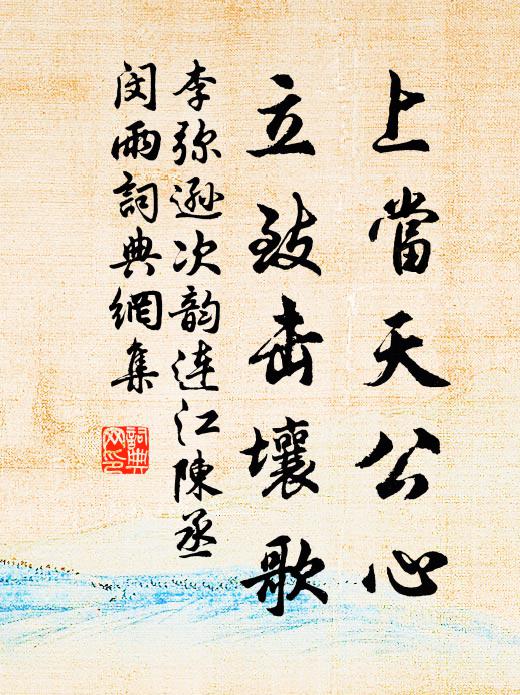 上當天公心
立致击壤歌
李弥遜次韵连江陳丞
闵雨詞典網集
詞典网印